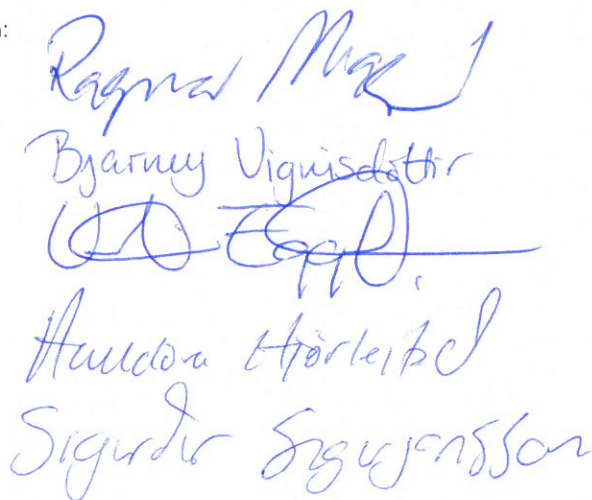 :
Ragnar Mag
Bjarney Vignisdóttir
Halldóra Hjörleifsd
Sigurður Sigurjónsson